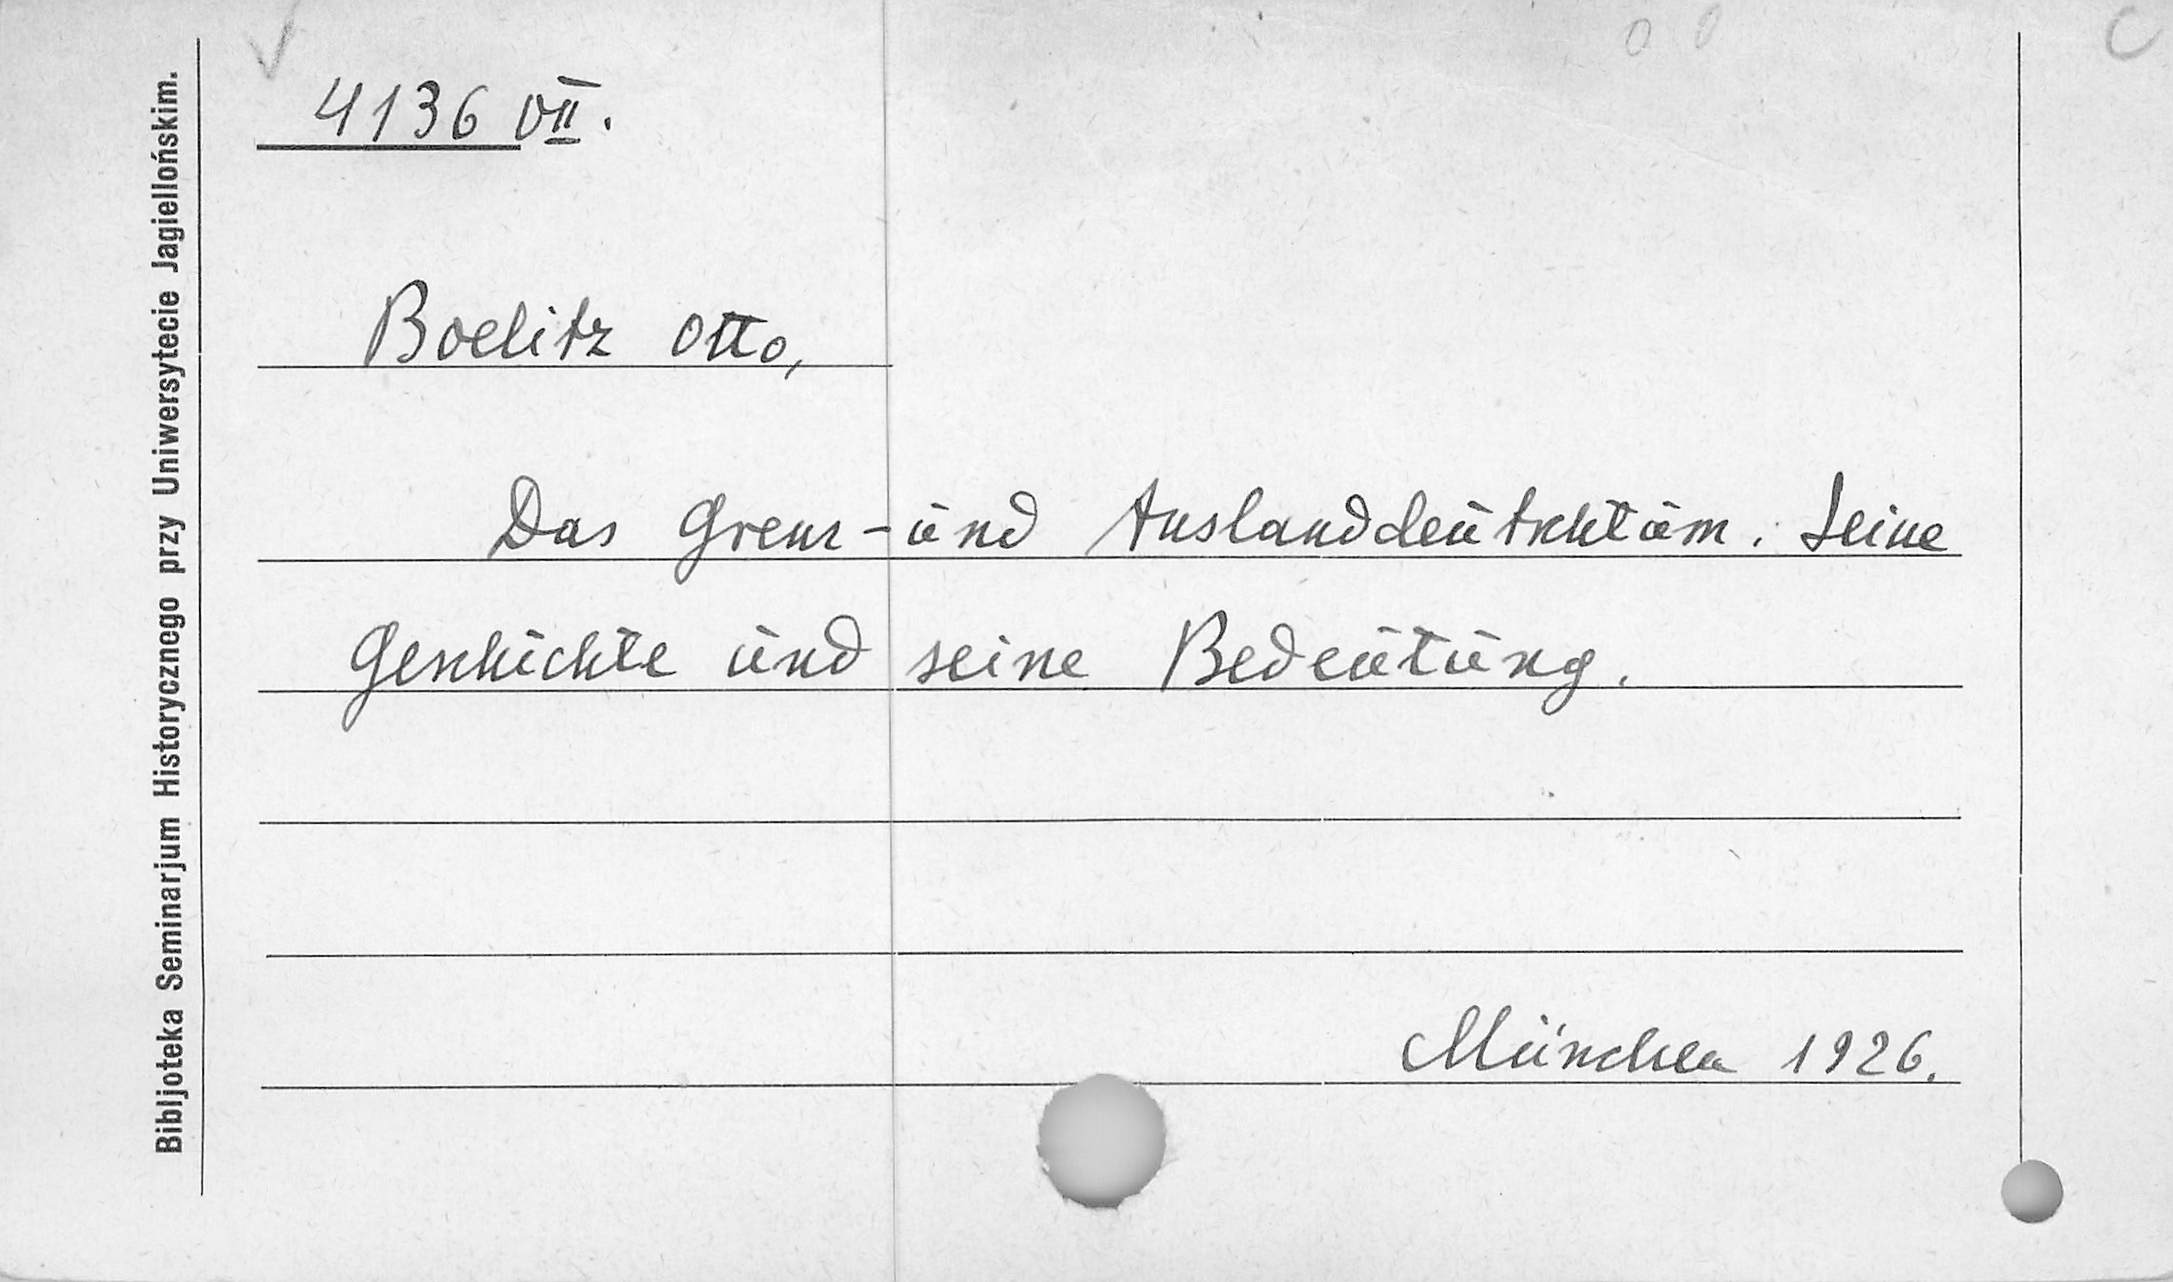 4136 VII.
Boelitz Otto,
Das Grenz-und Auslanddeutschtum. Seine
Geschichte und seine Bedeutung.
München 1926.
Bibljoteka Seminarjum Historycznego przy Uniwersytecie Jagiellońskim.